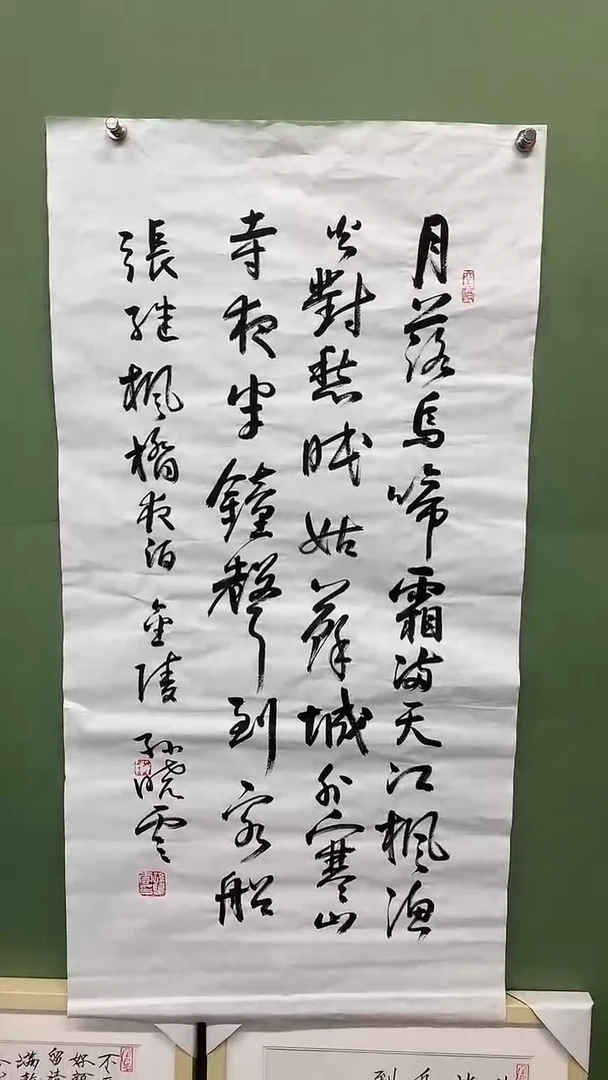 月落烏啼霜満天江楓漁
火對愁眠姑蘇城外寒山
寺夜半鐘聲到客船
張继楓橋夜泊 金陵 孫曉雲